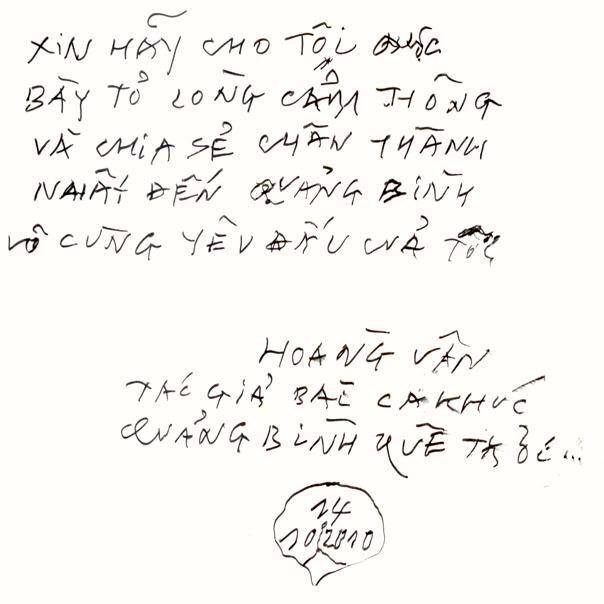 XIN HÃY CHO TÔI ĐƯỢC
BÀY TỎ LÒNG CẢM THÔNG
VÀ CHIA SẺ CHÂN THÀNH
NHẤT ĐẾN QUẢNG BÌNH
VÔ CÙNG YÊU DẤU CUẢ TÔI
HOÀNG VÂN
TÁC GIẢ BÀI CA KHÚC
QUẢNG BÌNH QUÊ TA ...
14
10.2010